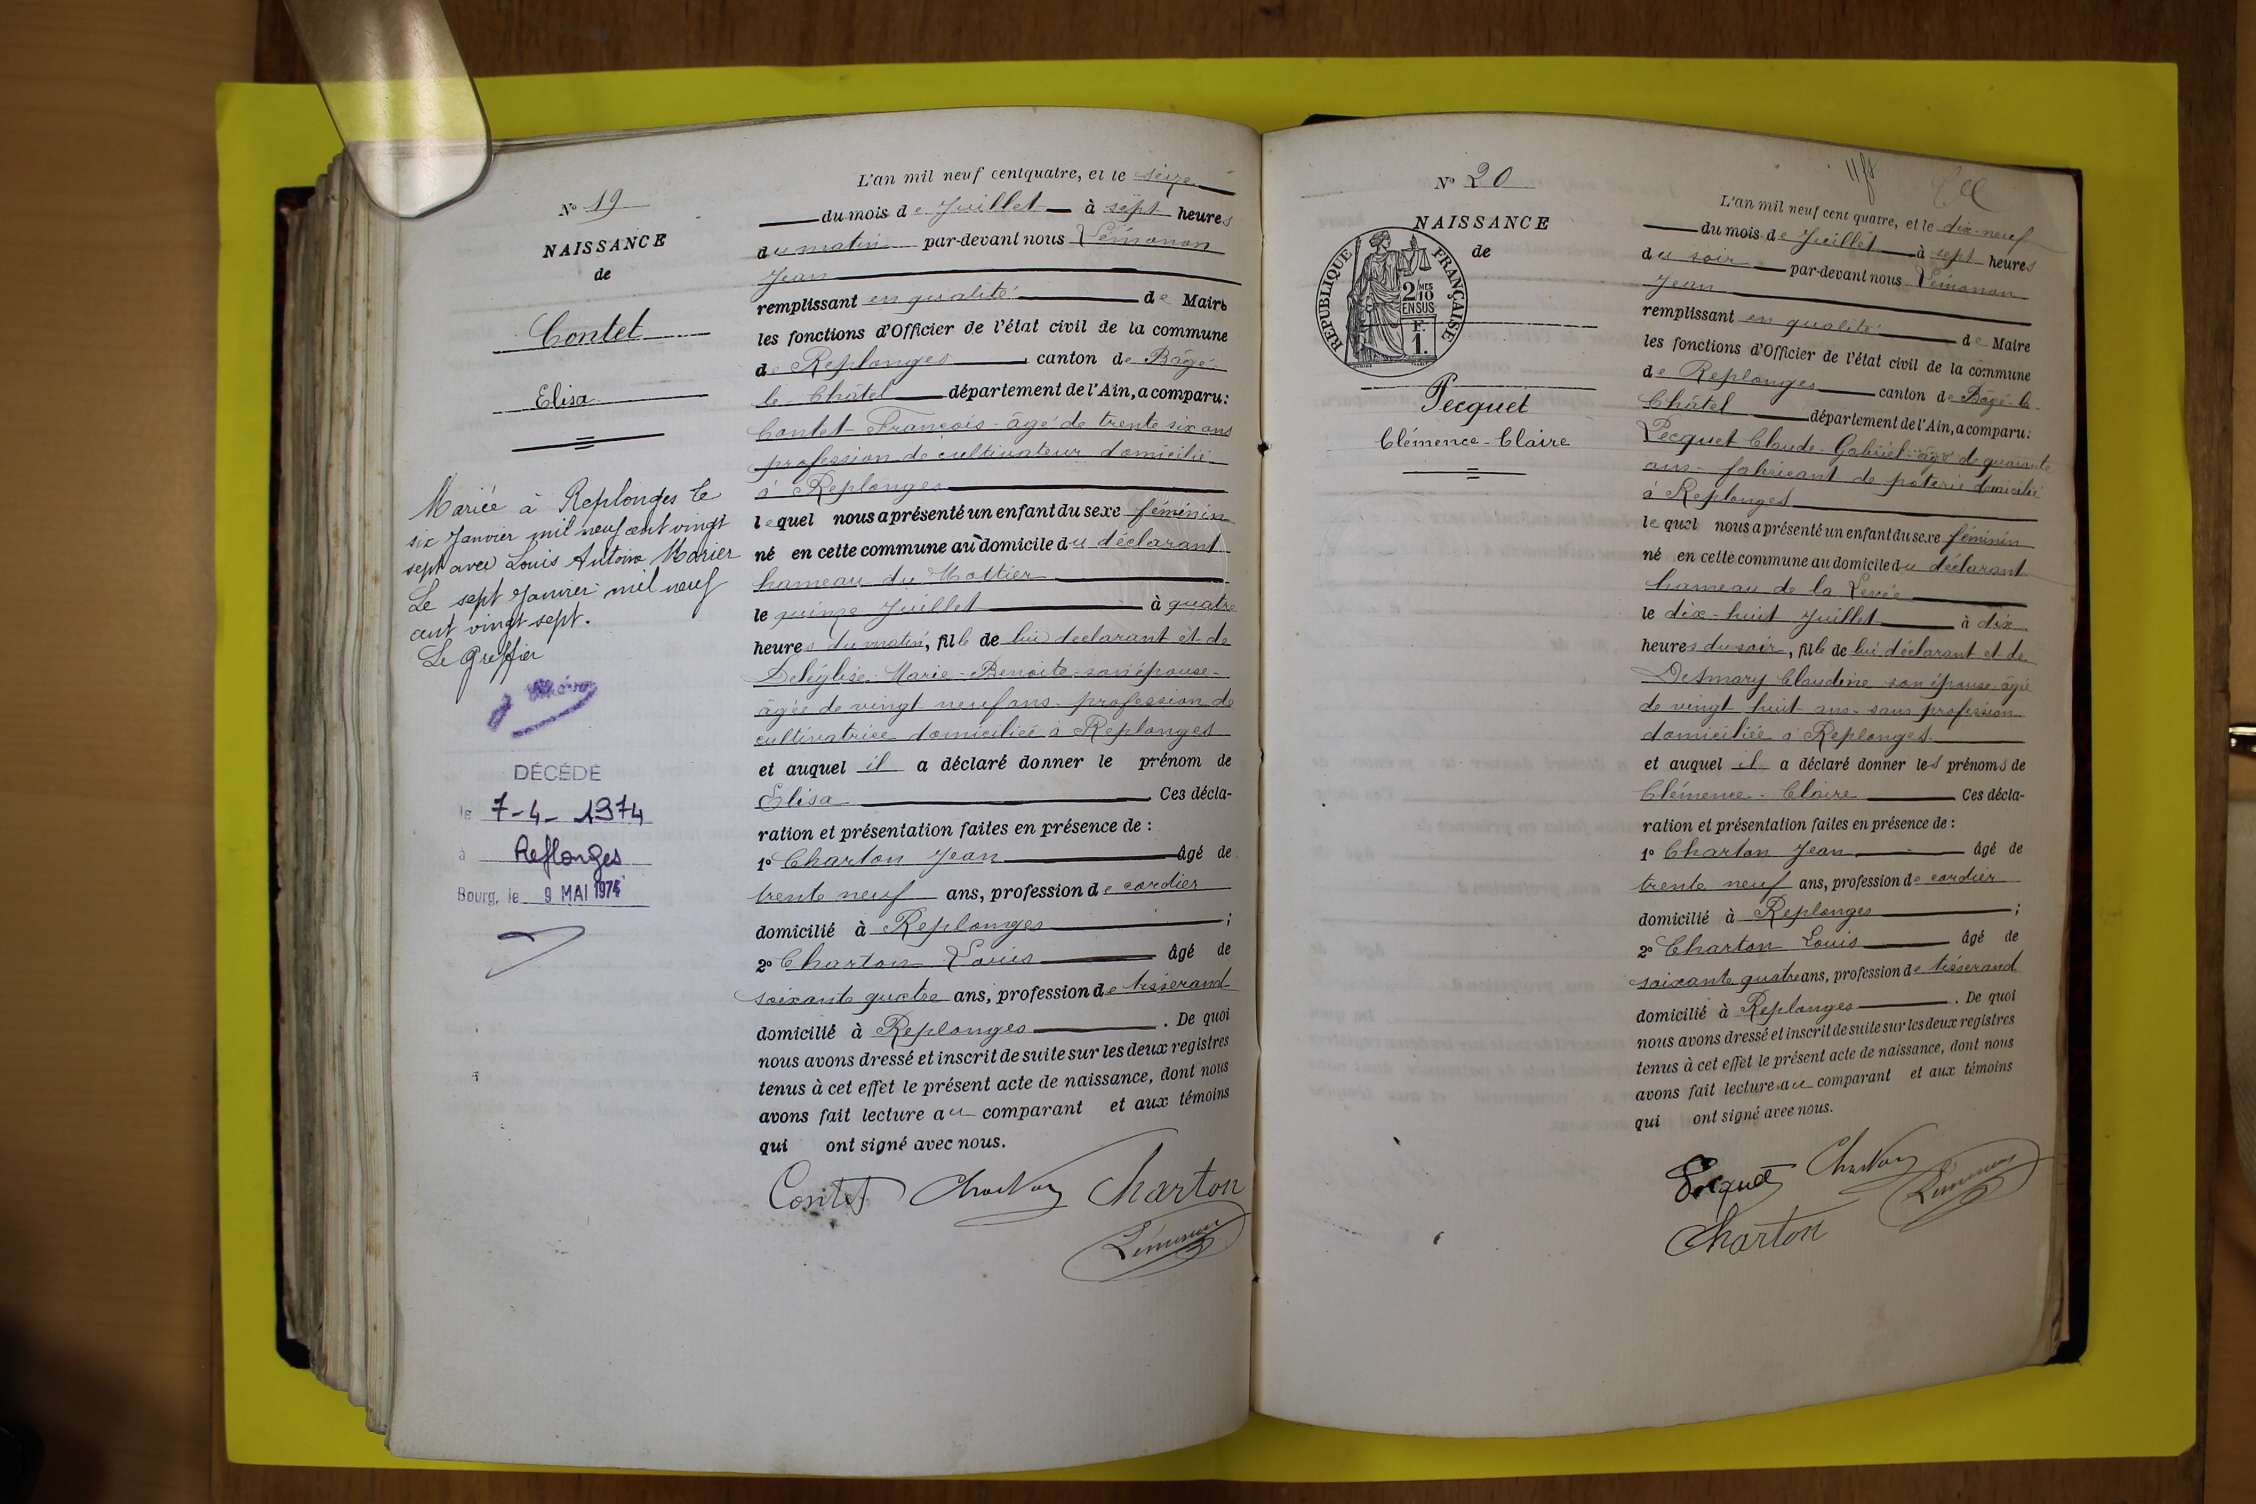 N° 19
NAISSANCE
de
Contet
Elisa
Mariée à Replonges le
six Janvier mil neuf cent vingt
sept avec Louis Antoine Morier
Le sept Janvier mil neuf
cent vingt sept.
Le Greffier
DÉCÉDÉ
le 7-4-1974
à Replonges
Bourg, le 9 MAI 1974
L'an mil neuf cent quatre, et le seize
du mois de Juillet à sept heures
du matin par-devant nous Lémonon
Jean
remplissant en qualité de Maire
les fonctions d'Officier de l'état civil de la commune
de Replonges canton de Bâgé
le Châtel département de l'Ain, a comparu:
Contet François âgé de trente six ans
profession de cultivateur domicilié
à Replonges
lequel nous a présenté un enfant du sexe féminin
né en cette commune au domicile du déclarant
hameau du Mottier
le quinze Juillet à quatre
heures du matin, fille de lui déclarant et de
Deléglise Marie-Benoite son épouse
âgée de vingt neuf ans profession de
cultivatrice domiciliée à Replonges
et auquel il a déclaré donner le prénom de
Elisa Ces décla-
ration et présentation faites en présence de :
1° Charton Jean âgé de
trente neuf ans, profession de cordier
domicilié à Replonges ;
2° Charton Louis âgé de
soixante quatre ans, profession de tisserand
domicilié à Replonges . De quoi
nous avons dressé et inscrit de suite sur les deux registres
tenus à cet effet le présent acte de naissance, dont nous
avons fait lecture au comparant et aux témoins
qui ont signé avec nous.
Contet Charton Charton
Lémonon
N° 20
NAISSANCE
de
REPUBLIQUE FRANÇAISE
2 MES
10
EN SUS
F.
1.
Pecquet
Clémence-Claire
L'an mil neuf cent quatre, et le dix-neuf
du mois de Juillet à sept heures
du soir par-devant nous Lémonon
Jean
remplissant en qualité de Maire
les fonctions d'Officier de l'état civil de la commune
de Replonges canton de Bâgé-le-
Châtel département de l'Ain, a comparu:
Pecquet Claude-Gabriel âgé de quarante
ans fabricant de poterie domicilié
à Replonges
lequel nous a présenté un enfant du sexe féminin
né en cette commune au domicile du déclarant
hameau de la Levée
le dix-huit Juillet à dix
heures du soir, fille de lui déclarant et de
Desmary Claudine son épouse âgée
de vingt huit ans sans profession
domiciliée à Replonges
et auquel il a déclaré donner les prénoms de
Clémence-Claire Ces décla-
ration et présentation faites en présence de :
1° Charton Jean âgé de
trente neuf ans, profession de cordier
domicilié à Replonges ;
2° Charton Louis âgé de
soixante quatre ans, profession de tisserand
domicilié à Replonges . De quoi
nous avons dressé et inscrit de suite sur les deux registres
tenus à cet effet le présent acte de naissance, dont nous
avons fait lecture au comparant et aux témoins
qui ont signé avec nous.
Pecquet Charton Lémonon
Charton